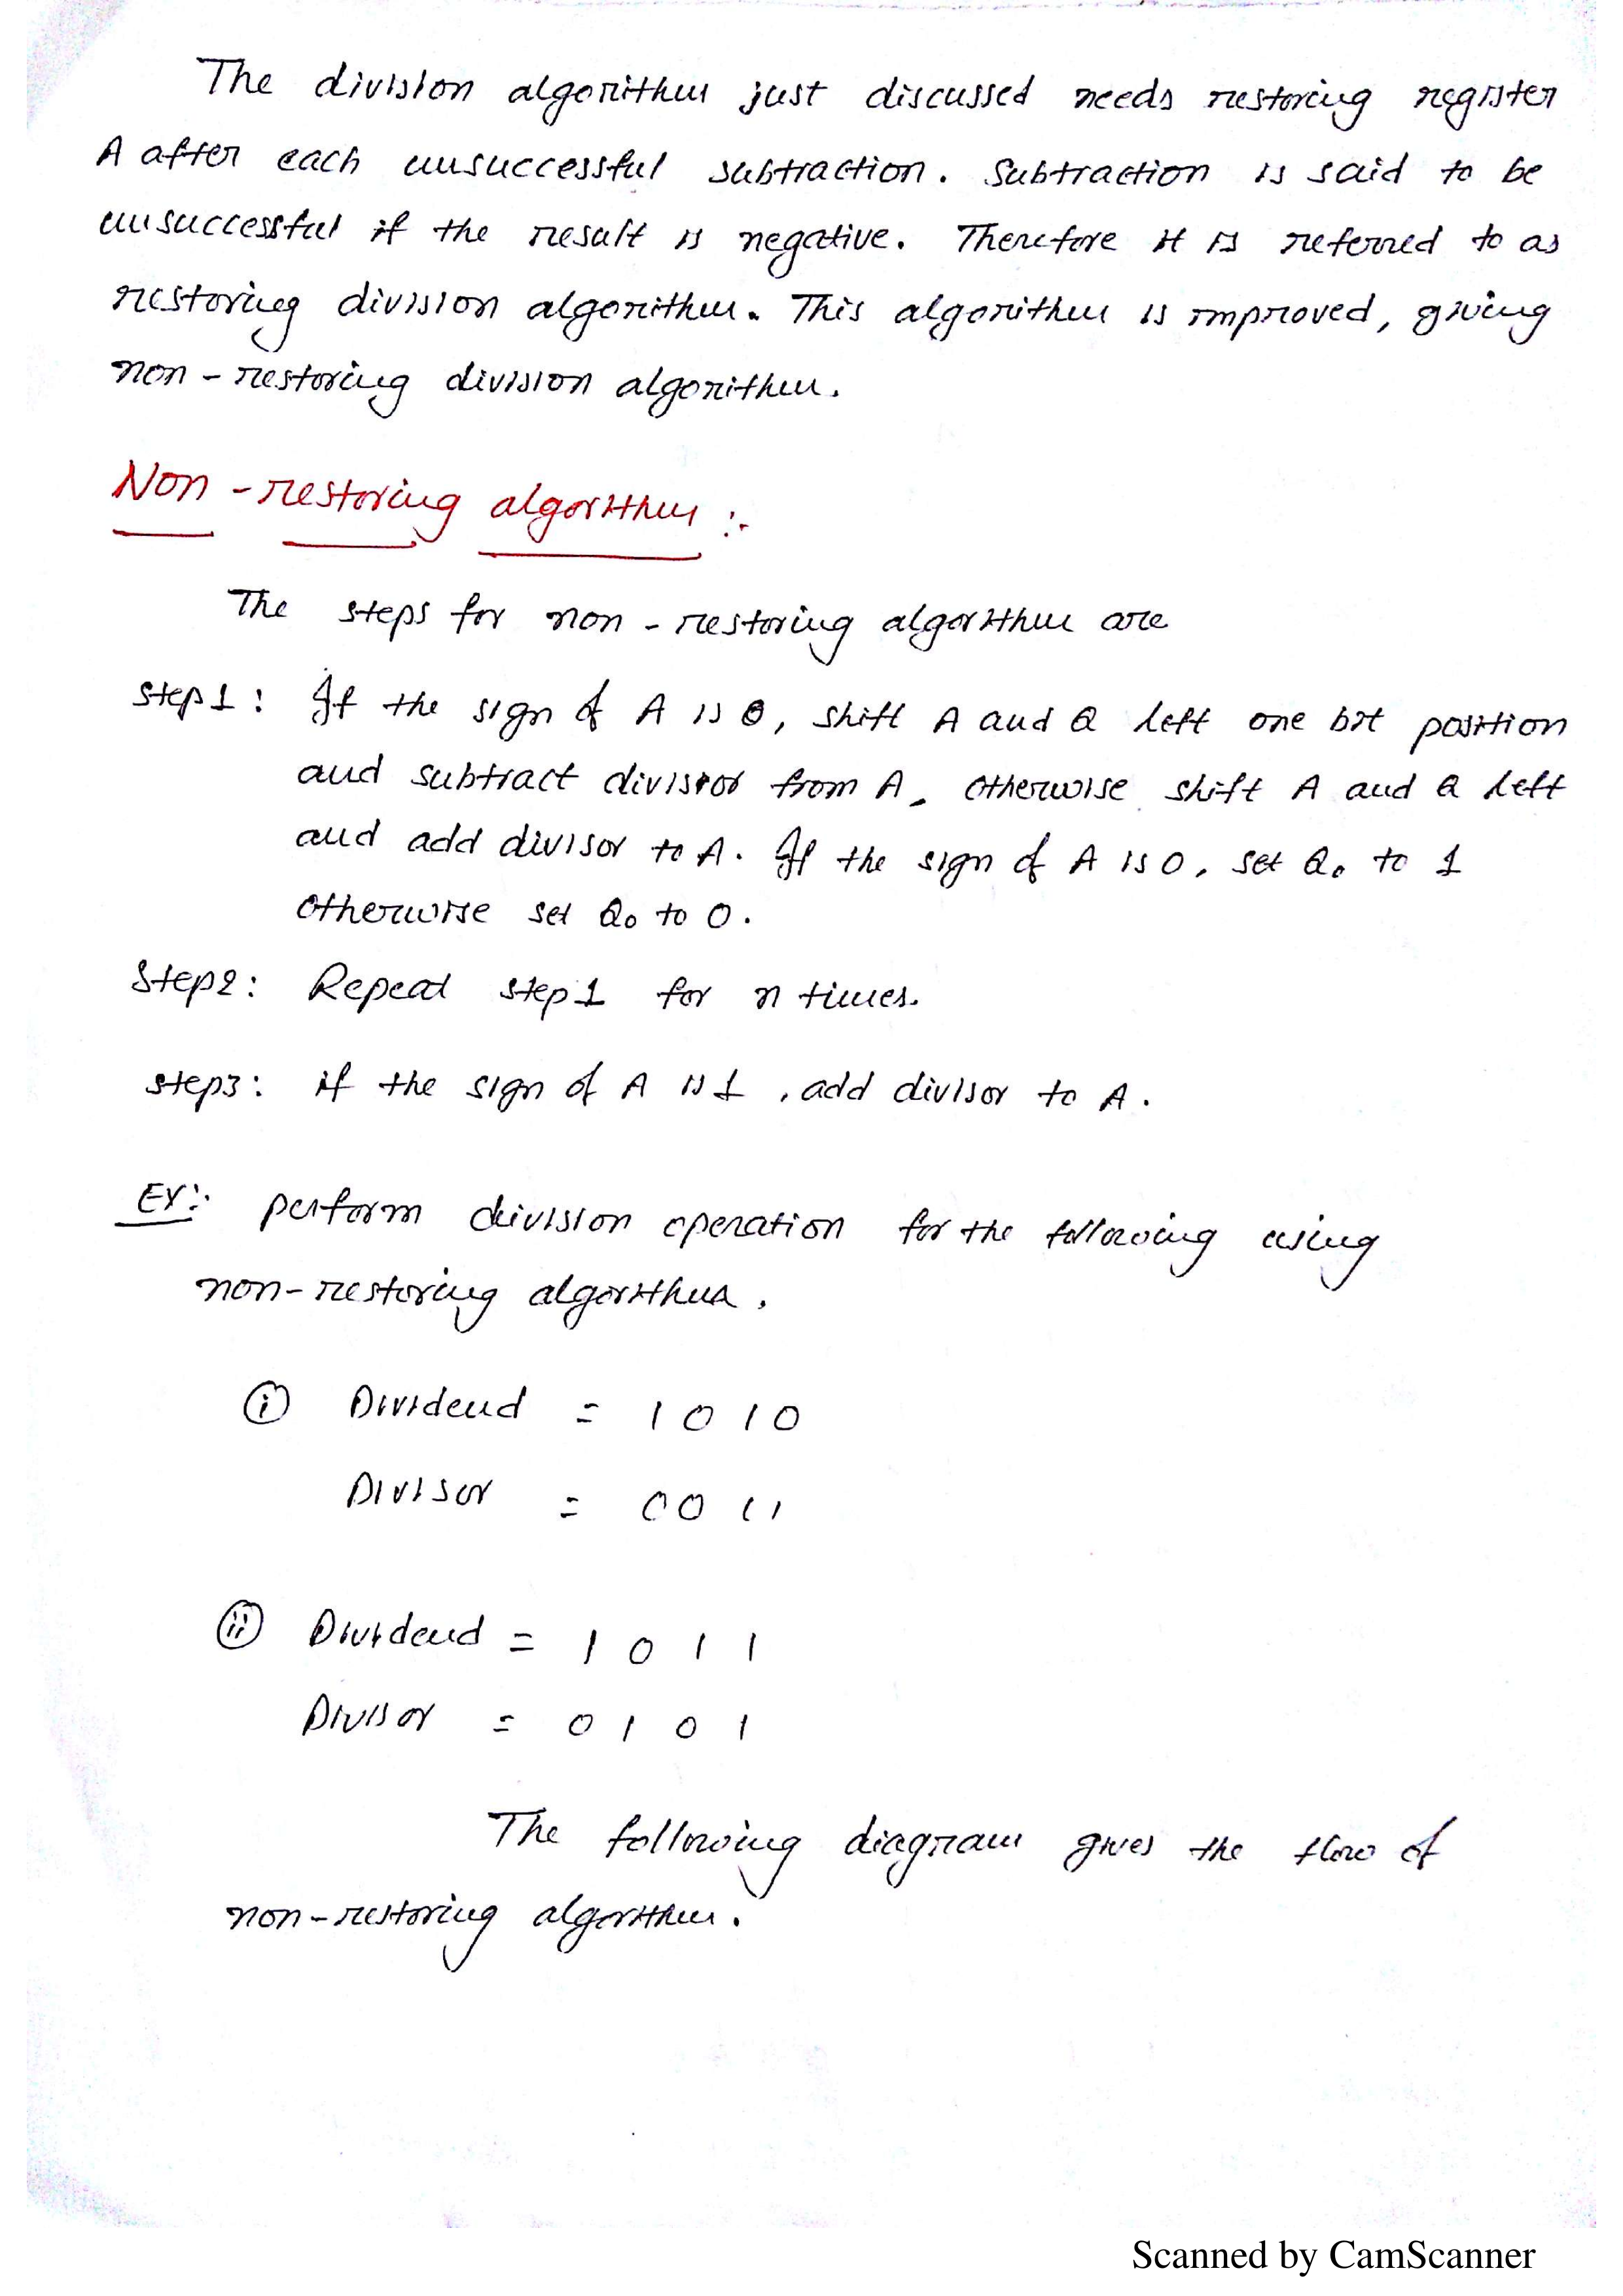 The division algorithm just discussed needs restoring register
A after each unsuccessful subtraction. Subtraction is said to be
unsuccessful if the result is negative. Therefore it is referred to as
restoring division algorithm. This algorithm is improved, giving
non-restoring division algorithm.
Non-restoring algorithm :-
The steps for non-restoring algorithm are
Step1: If the sign of A is 0, shift A and Q left one bit position
and subtract divisor from A, otherwise shift A and Q left
and add divisor to A. If the sign of A is 0, set Q0 to 1
otherwise set Q0 to 0.
Step2: Repeat step 1 for n times.
step3: if the sign of A is 1, add divisor to A.
Ex:- perform division operation for the following using
non-restoring algorithm.
(i) Dividend = 1 0 1 0
Divisor = 0 0 1 1
(ii) Dividend = 1 0 1 1
Divisor = 0 1 0 1
The following diagram gives the flow of
non-restoring algorithm.
Scanned by CamScanner